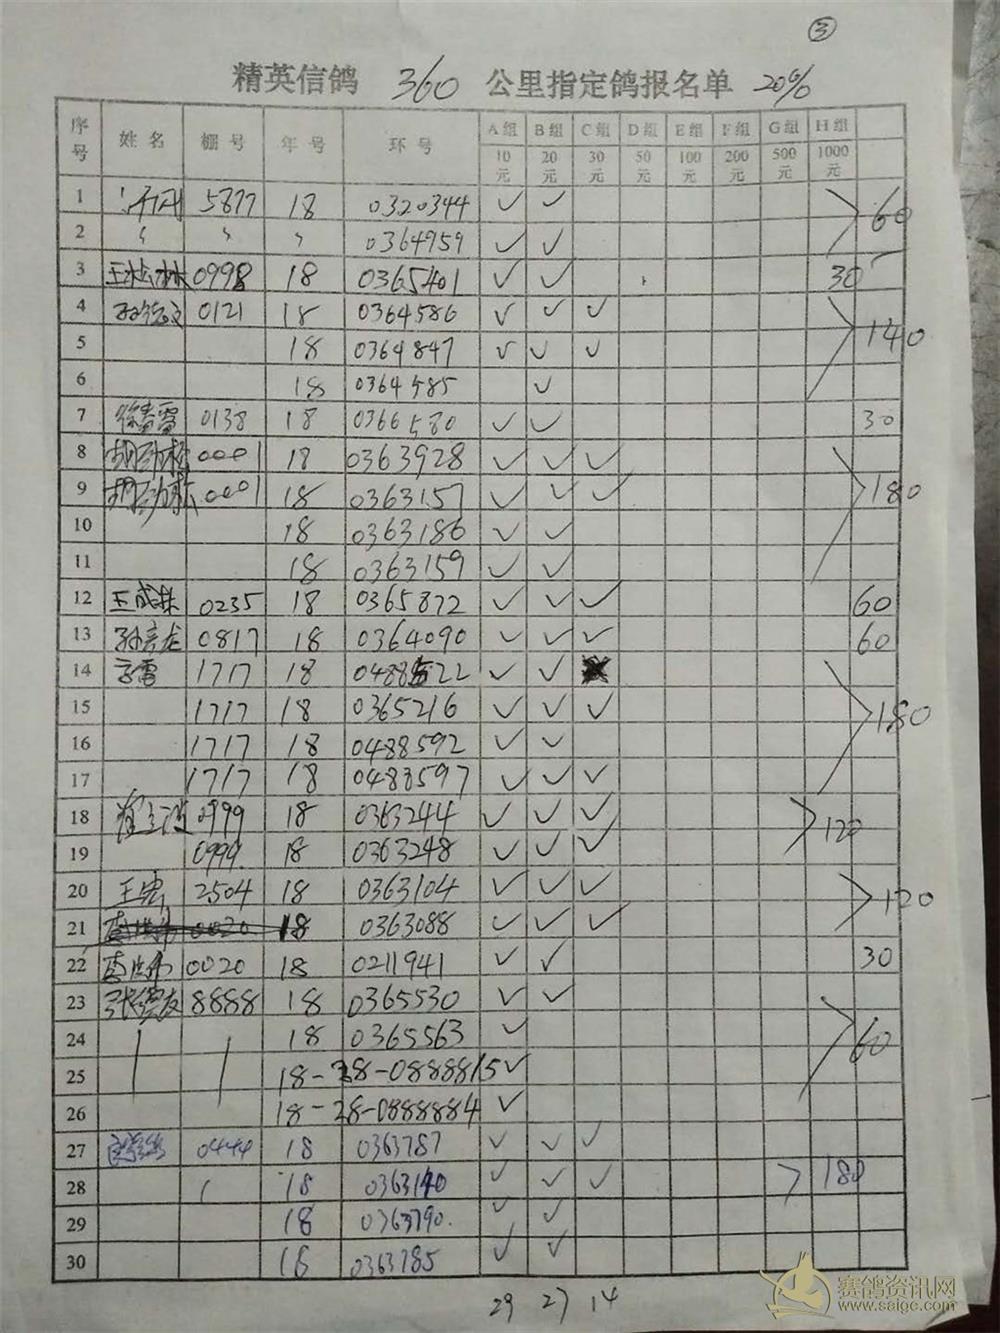 ③
精英信鸽 360 公里指定鸽报名单 20%
序号 姓名 棚号 年号 环号 A组 B组 C组 D组 E组 F组 G组 H组
10元 20元 30元 50元 100元 200元 500元 1000元
1 5877 18 0320344 ✓ ✓ 60
2 0364959 ✓ ✓
3 王松林 0998 18 0365401 ✓ ✓ 30
4 孙德文 0121 18 0364586 ✓ ✓ ✓ 140
5 18 0364847 ✓ ✓ ✓
6 18 0364585 ✓
7 徐春雷 0138 18 0366580 ✓ ✓ 30
8 胡劲松 0001 18 0363928 ✓ ✓ ✓ 180
9 胡劲松 0001 18 0363157 ✓ ✓ ✓
10 18 0363186 ✓ ✓
11 18 0363159 ✓ ✓
12 王成林 0235 18 0365872 ✓ ✓ ✓ 60
13 孙彦龙 0817 18 0364090 ✓ ✓ ✓ 60
14 1717 18 0488522 ✓ ✓
15 1717 18 0365216 ✓ ✓ ✓ 180
16 1717 18 0488592 ✓ ✓
17 1717 18 0488597 ✓ ✓ ✓
18 0999 18 0363244 ✓ ✓ ✓ 120
19 0999 18 0363248 ✓ ✓ ✓
20 王宪 2504 18 0363104 ✓ ✓ ✓ 120
21 0020 18 0363088 ✓ ✓ ✓
22 0020 18 0211941 ✓ ✓ 30
23 张德友 8888 18 0365530 ✓ ✓
24 18 0365563 ✓ 60
25 18-28-0888815 ✓
26 18-28-0888884 ✓
27 0444 18 0363787 ✓ ✓ ✓
28 18 0363140 ✓ ✓ ✓ 180
29 18 0363790. ✓ ✓
30 18 0363785 ✓ ✓
29 27 14
赛鸽资讯网
www.saigc.com